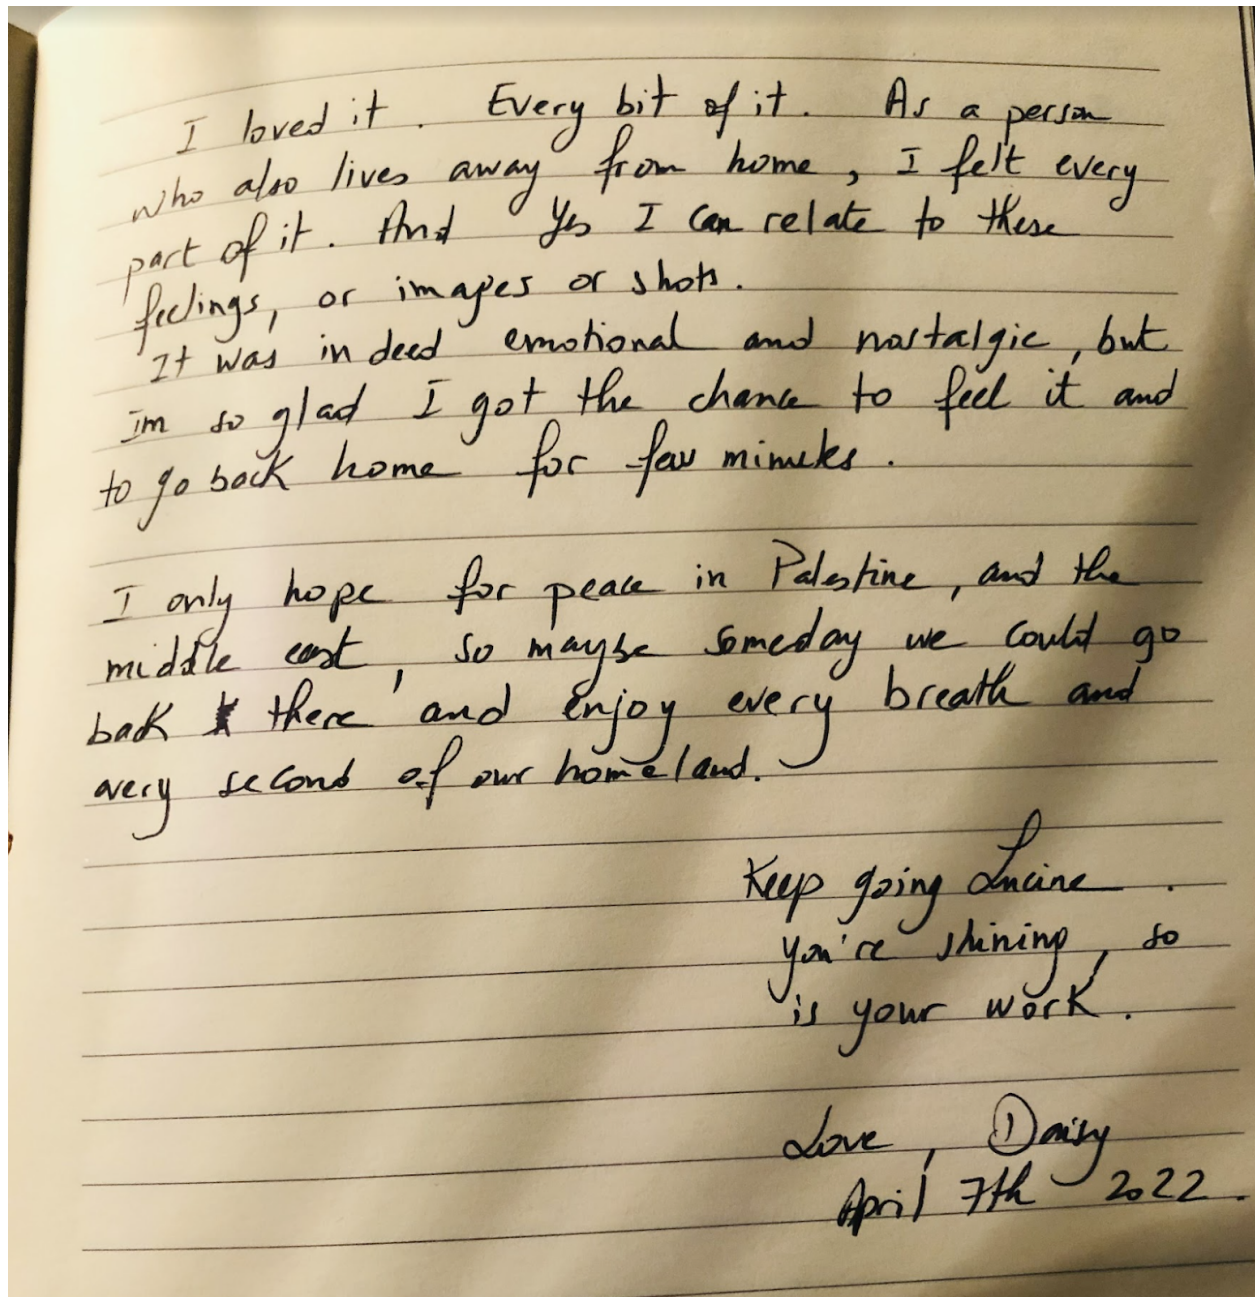 I loved it. Every bit of it. As a person
who also lives away from home, I felt every
part of it. And Yes I can relate to these
feelings, or images or shots.
It was indeed emotional and nostalgic, but
Im so glad I got the chance to feel it and
to go back home for few minutes.
I only hope for peace in Palestine, and the
middle east, so maybe someday we could go
back there and enjoy every breath and
every second of our homeland.
Keep going Lucine.
you're shining, so
is your work.
Love, Daisy
April 7th 2022.